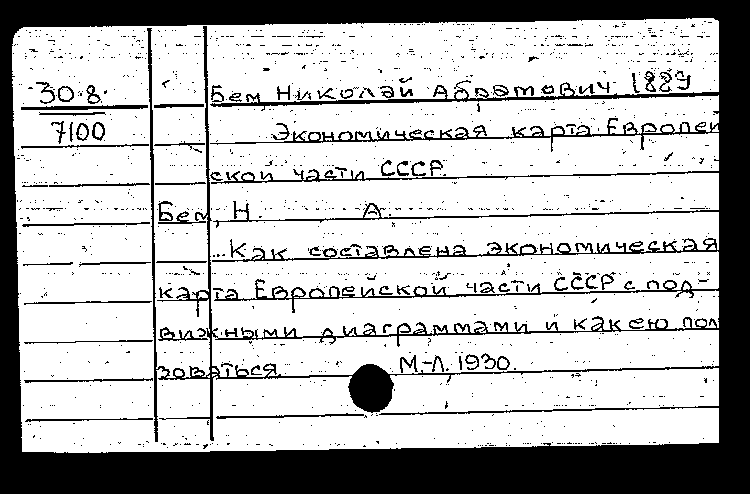 30.8. Бем Николай Абрамович 1889
7100 Экономическая карта Европей
ской части СССР.
Бем, Н. А.
...Как составлена экономическая
карта Европейской части СССР с под-
вижными диаграммами и как ею пол
зоваться. М.-Л. 1930.